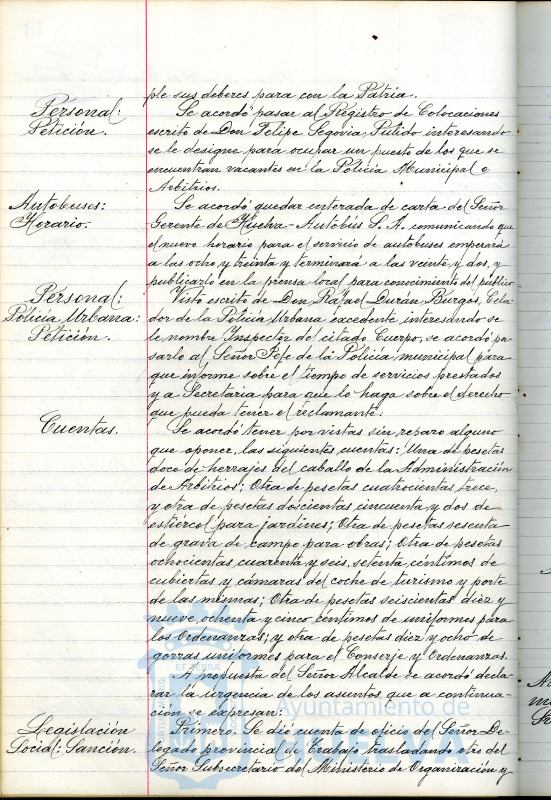 ple sus deberes para con la Patria.
Personal:
Petición.
Se acordó pasar al Registro de Colocaciones
escrito de Don Felipe Segovia Pulido interesando
se le designe para ocupar un puesto de los que se
encuentran vacantes en la Policía Municipal o
Arbitrios.
Autobuses:
Horario.
Se acordó quedar enterada de carta del Señor
Gerente de Huelva-Autobús S.A. comunicando que
el nuevo horario para el servicio de autobuses empezará
a las ocho y treinta y terminará a las veinte y dos, y
publicarlo en la prensa local para conocimiento del público
Personal:
Policía Urbana:
Petición.
Visto escrito de Don Rafael Durán Burgos, Cela-
dor de la Policía Urbana excedente interesando se
le nombre Inspector del citado Cuerpo, se acordó pa-
sarlo al Señor Jefe de la Policía municipal para
que informe sobre el tiempo de servicios prestados
y a Secretaría para que lo haga sobre el derecho
que pueda tener el reclamante.
Cuentas.
Se acordó tener por vistas sin reparo alguno
que oponer, las siguientes cuentas: Una de pesetas
doce de herrajes del caballo de la Administración
de Arbitrios; Otra de pesetas cuatrocientas trece,
y otra de pesetas doscientas cincuenta y dos de
estiércol para jardines; Otra de pesetas sesenta
de grava de campo para obras; Otra de pesetas
ochocientas cuarenta y seis, setenta céntimos de
cubiertas y cámaras del coche de turismo y porte
de las mismas; Otra de pesetas seiscientas diez y
nueve, ochenta y cinco céntimos de uniformes para
los Ordenanzas; y otra de pesetas diez y ocho de
gorras uniformes para el Conserje y Ordenanzas.
A propuesta del Señor Alcalde se acordó decla-
rar la urgencia de los asuntos que a continua-
ción se expresan:
Legislación
Social: Sanción.
Primero. Se dió cuenta de oficio del Señor De-
legado provincial de Trabajo trasladando otro del
Señor Subsecretario del Ministerio de Organización y
Ayuntamiento de
HUELVA